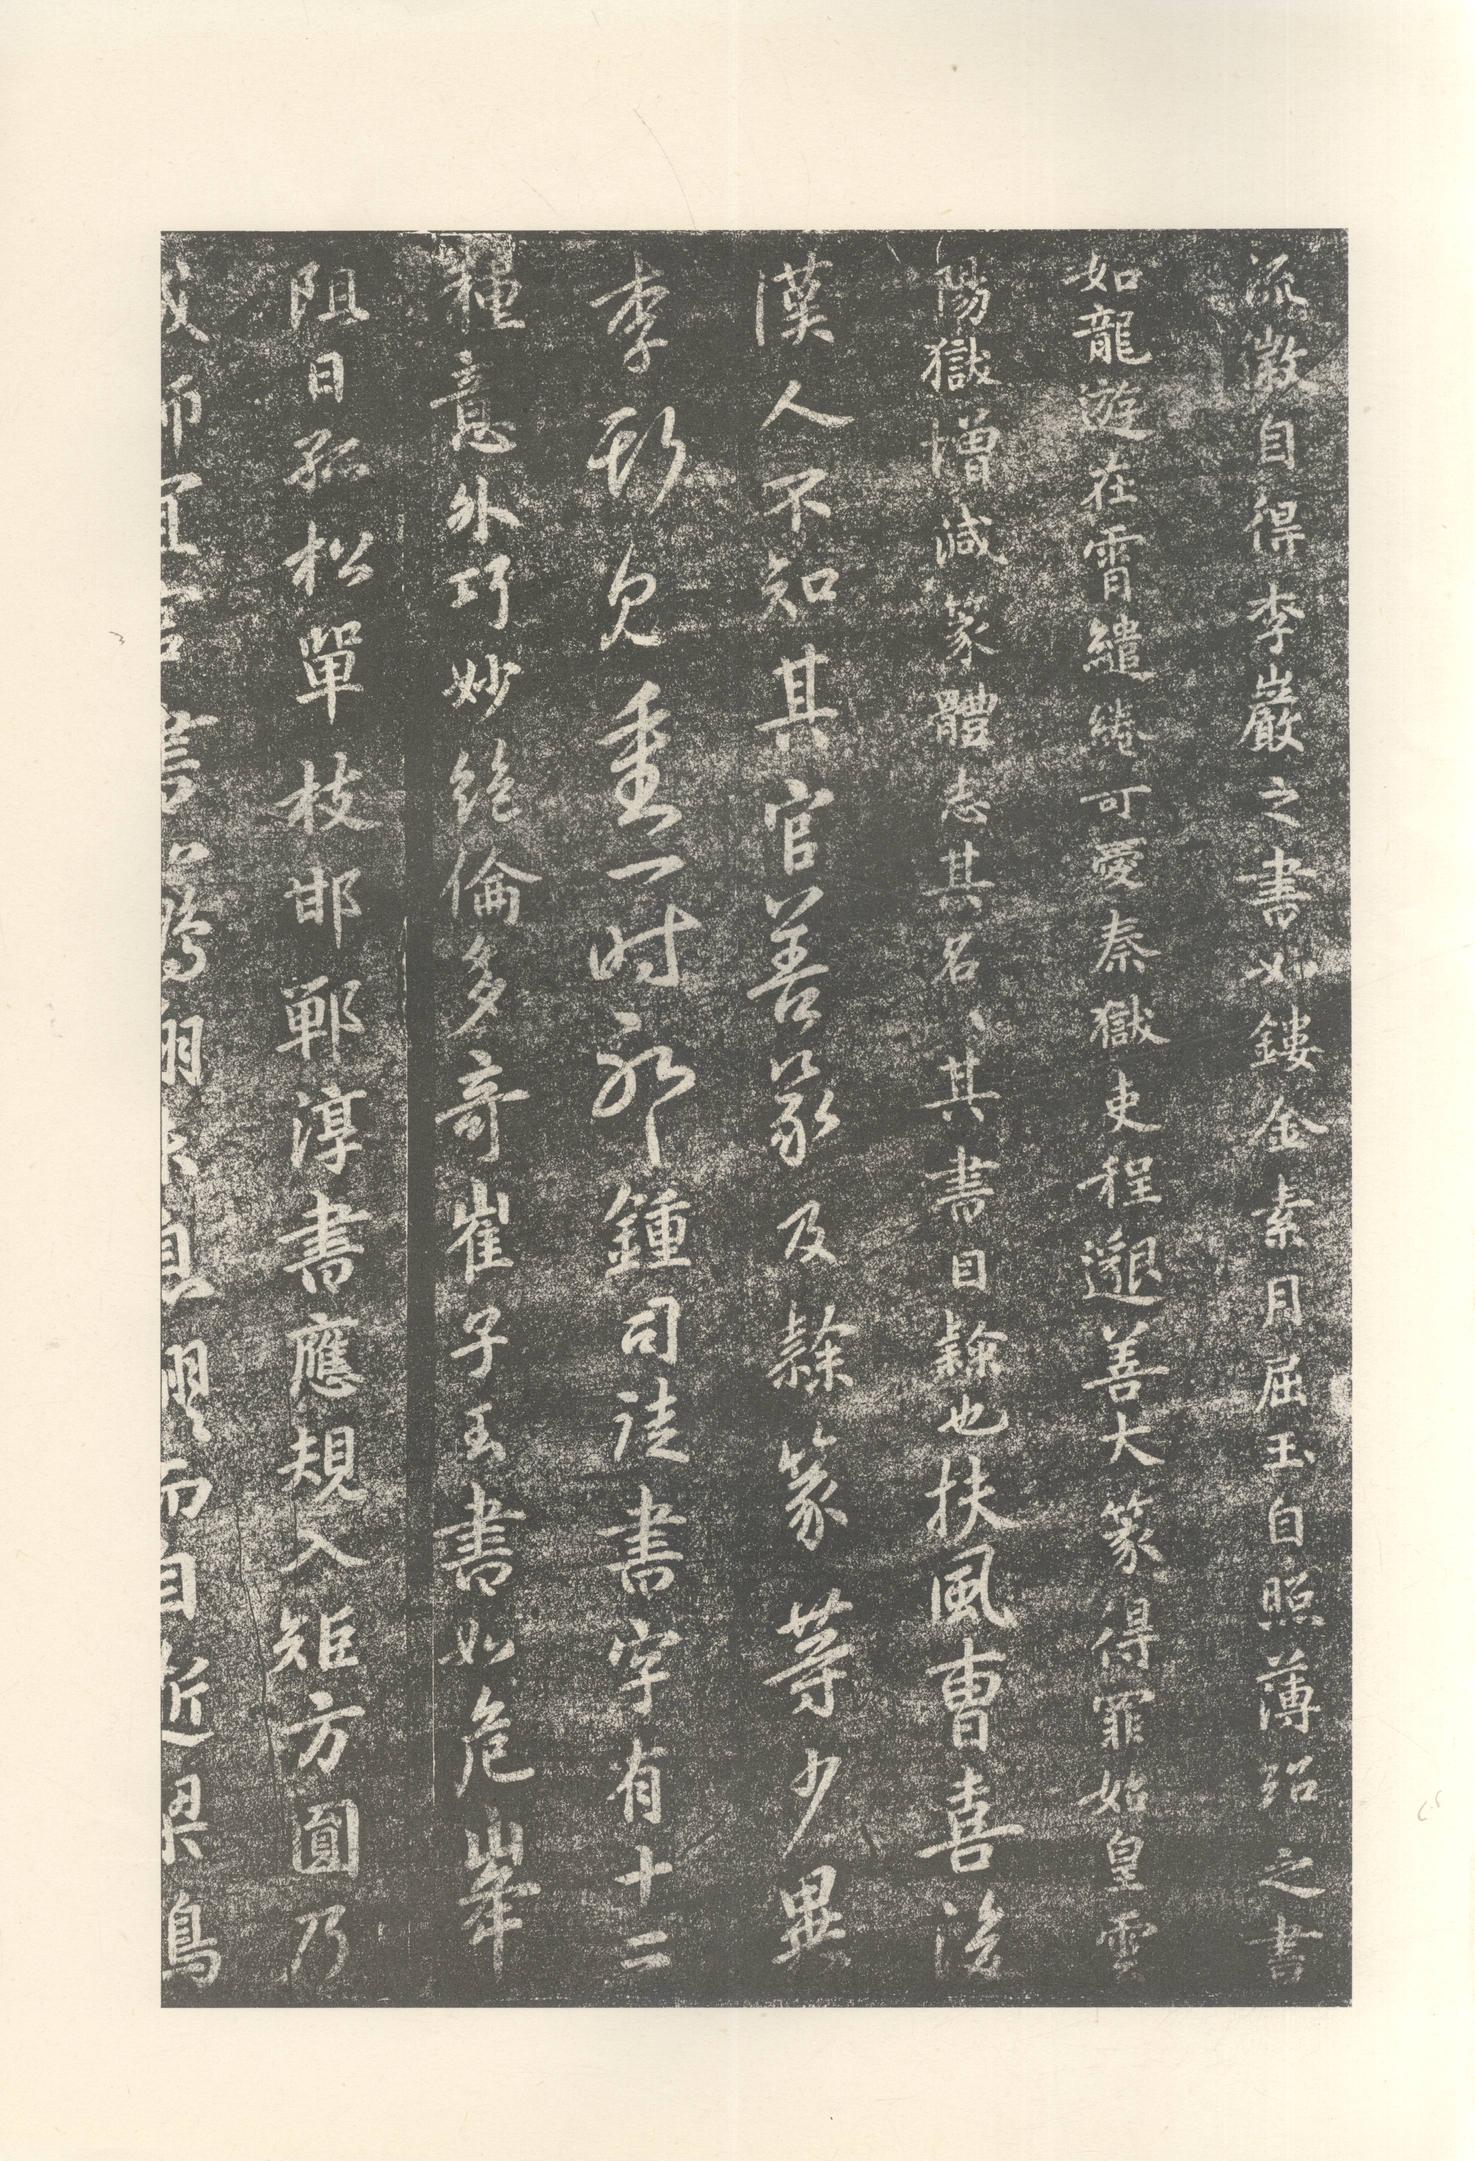 流澈自得李巖之書如鏤金素月屈玉自照薄紹之書
如龍遊在霄繾綣可愛秦獄吏程邈善大篆得罪始皇雲
陽獄增減篆體志其名、其書曰隸也扶風曹喜後
漢人不知其官善篆及隸篆等少異
李斯見重一時耶鍾司徒書字有十二
種意外巧妙絕倫多奇崔子玉書如危峯
阻日孤松單枝邯鄲淳書應規入矩方圓乃
成師宜官書鵰翔未息翩而自逝梁鳥